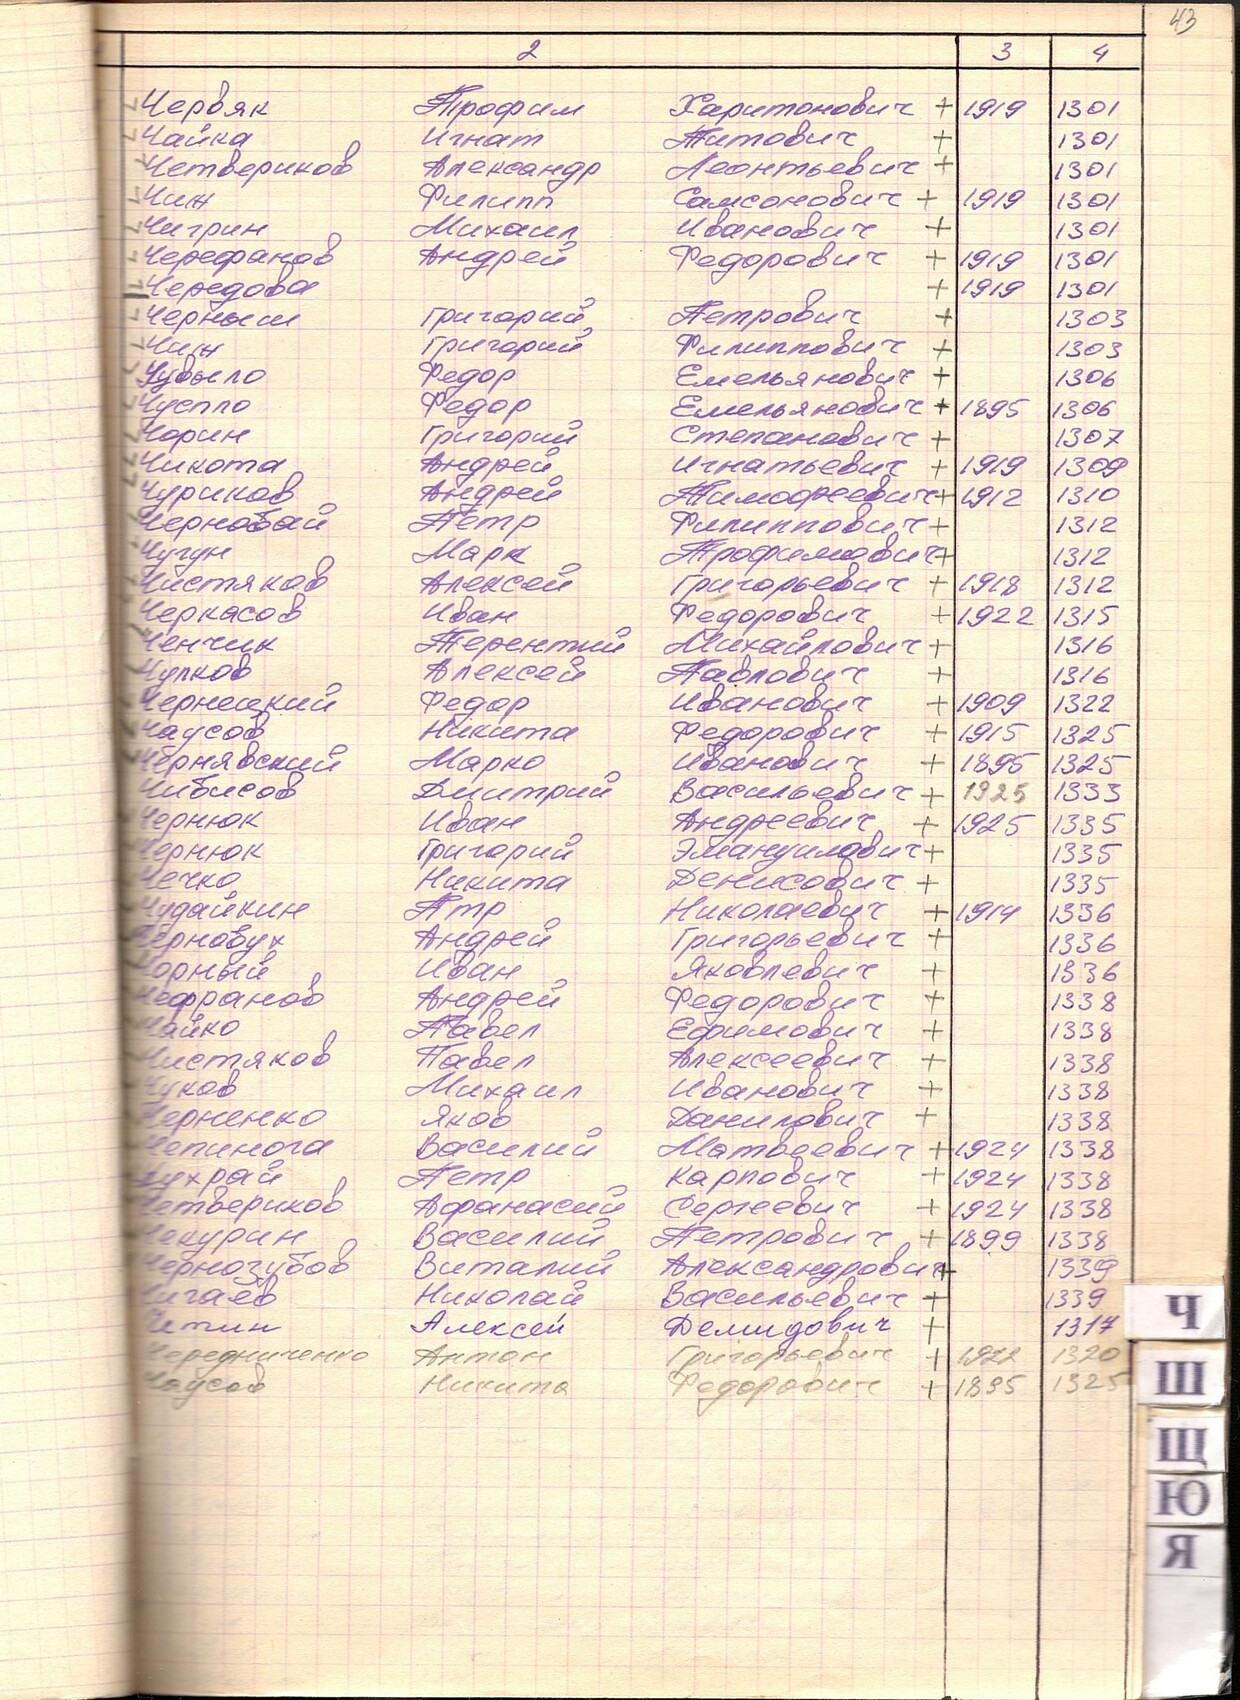 43
2 3 4
Червяк Трофим Харитонович + 1919 1301
Чайка Игнат Титович + 1301
Четвериков Александр Леонтьевич + 1301
Чиж Филипп Самсонович + 1919 1301
Чигрин Михаил Иванович + 1301
Черефанов Андрей Федорович + 1919 1301
Чередова + 1919 1301
Черныш Григорий Петрович + 1303
Чиж Григорий Филиппович + 1303
Чувыло Федор Емельянович + 1306
Федор Емельянович + 1895 1306
Чорин Григорий Степанович + 1307
Чикота Андрей Игнатьевич + 1919 1309
Чуриков Андрей Тимофеевич + 1912 1310
Чернобай Петр Филиппович + 1312
Чугун Марк Трофимович + 1312
Чистяков Алексей Григорьевич + 1918 1312
Черкасов Иван Федорович + 1922 1315
Ченчик Терентий Михайлович + 1316
Чулков Алексей Павлович + 1316
Чернецкий Федор Иванович + 1909 1322
Чаусов Никита Федорович + 1915 1325
Чернявский Марко Иванович + 1895 1325
Чибисов Дмитрий Васильевич + 1925 1333
Чернюк Иван Андреевич + 1925 1335
Чернюк Григорий Эмануилович + 1335
Чечко Никита Денисович + 1335
Чудайкин Птр Николаевич + 1914 1336
Черновух Андрей Григорьевич + 1336
Чорный Иван Яковлевич + 1336
Чефранов Андрей Федорович + 1338
Чайко Павел Ефимович + 1338
Чистяков Павел Алексеевич + 1338
Чуков Михаил Иванович + 1338
Черненко Яков Данилович + 1338
Чепинога Василий Матвеевич + 1924 1338
Чухрай Петр Карпович + 1924 1338
Четвериков Афанасий Сергеевич + 1924 1338
Чекурин Василий Петрович + 1899 1338
Чернозубов Виталий Александрович + 1339
Чигаев Николай Васильевич + 1339
Четин Алексей Демидович + 1317
Чередниченко Антон Григорьевич + 1922 1320
Чаусов Никита Федорович + 1895 1325
Ч
Ш
Щ
Ю
Я